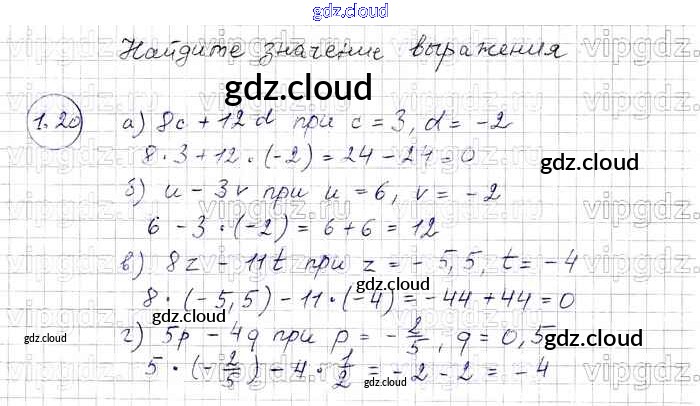 gdz.cloud
Найдите значение выражения
gdz.cloud
1.20 а) 8c + 12d при c = 3, d = -2
8 · 3 + 12 · (-2) = 24 - 24 = 0
gdz.cloud
б) u - 3v при u = 6, v = -2
6 - 3 · (-2) = 6 + 6 = 12
в) 8z - 11t при z = -5,5, t = -4
gdz.cloud
8 · (-5,5) - 11 · (-4) = -44 + 44 = 0
gdz.cloud
г) 5p - 4q при p = -2/5, q = 0,5
gdz.cloud
5 · (-2/5) - 4 · 1/2 = -2 - 2 = -4
gdz.cloud